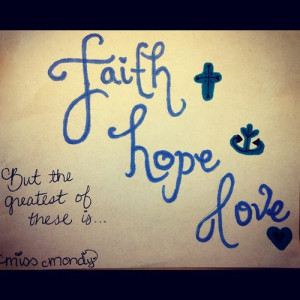 faith
hope
love
But the
greatest of
these is...
miss mondy